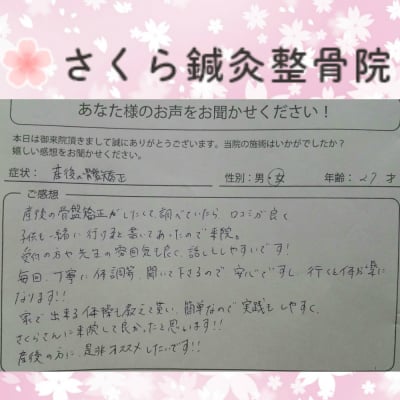 さくら鍼灸整骨院
あなた様のお声をお聞かせください！
本日は御来院頂きまして誠にありがとうございます。当院の施術はいかがでしたか？
嬉しい感想をお聞かせください。
症状： 産後の骨盤矯正 性別：男・女 年齢： 27 才
ご感想
産後の骨盤矯正がしたくて、調べていたら、口コミが良く
子供も一緒に行けると書いてあったので来院。
受付の方や先生の雰囲気も良く、話しもしやすいです！
毎回、丁寧に体調等、聞いて下さるので 安心ですし、行くと体が楽に
なります!!
家で出来る体操も教えて貰い、簡単なので実践もしやすく、
さくらさんに来院して良かったと思います!!
産後の方に、是非オススメしたいです!!